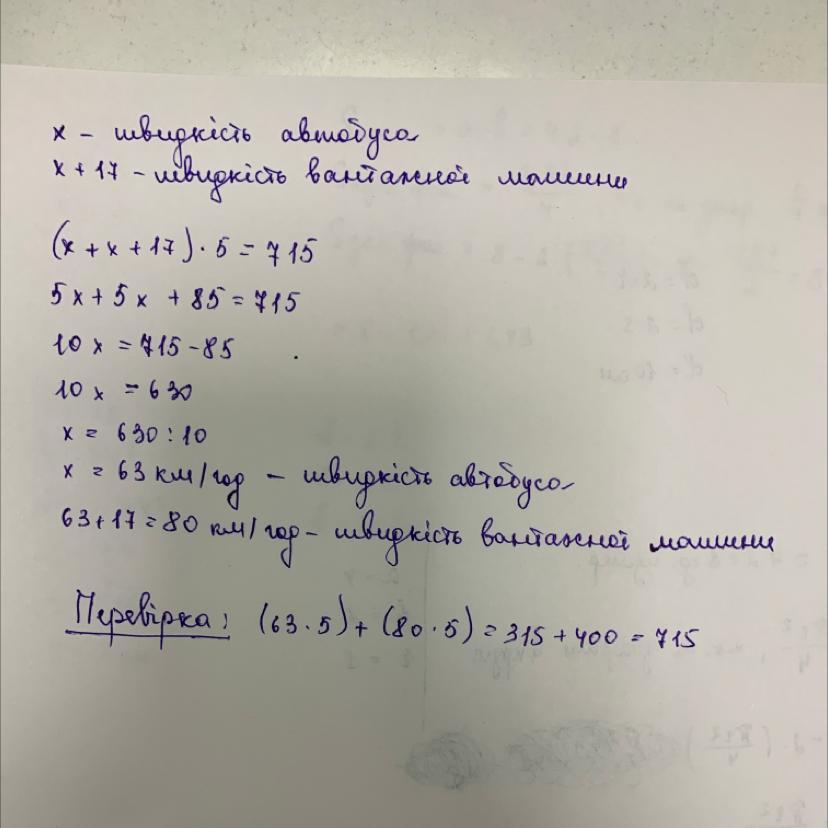 x - швидкість автобуса
x + 17 - швидкість вантажної машини
(x + x + 17) · 5 = 715
5x + 5x + 85 = 715
10x = 715 - 85
10x = 630
x = 630 : 10
x = 63 км/год - швидкість автобуса
63 + 17 = 80 км/год - швидкість вантажної машини
Перевірка: (63 · 5) + (80 · 5) = 315 + 400 = 715